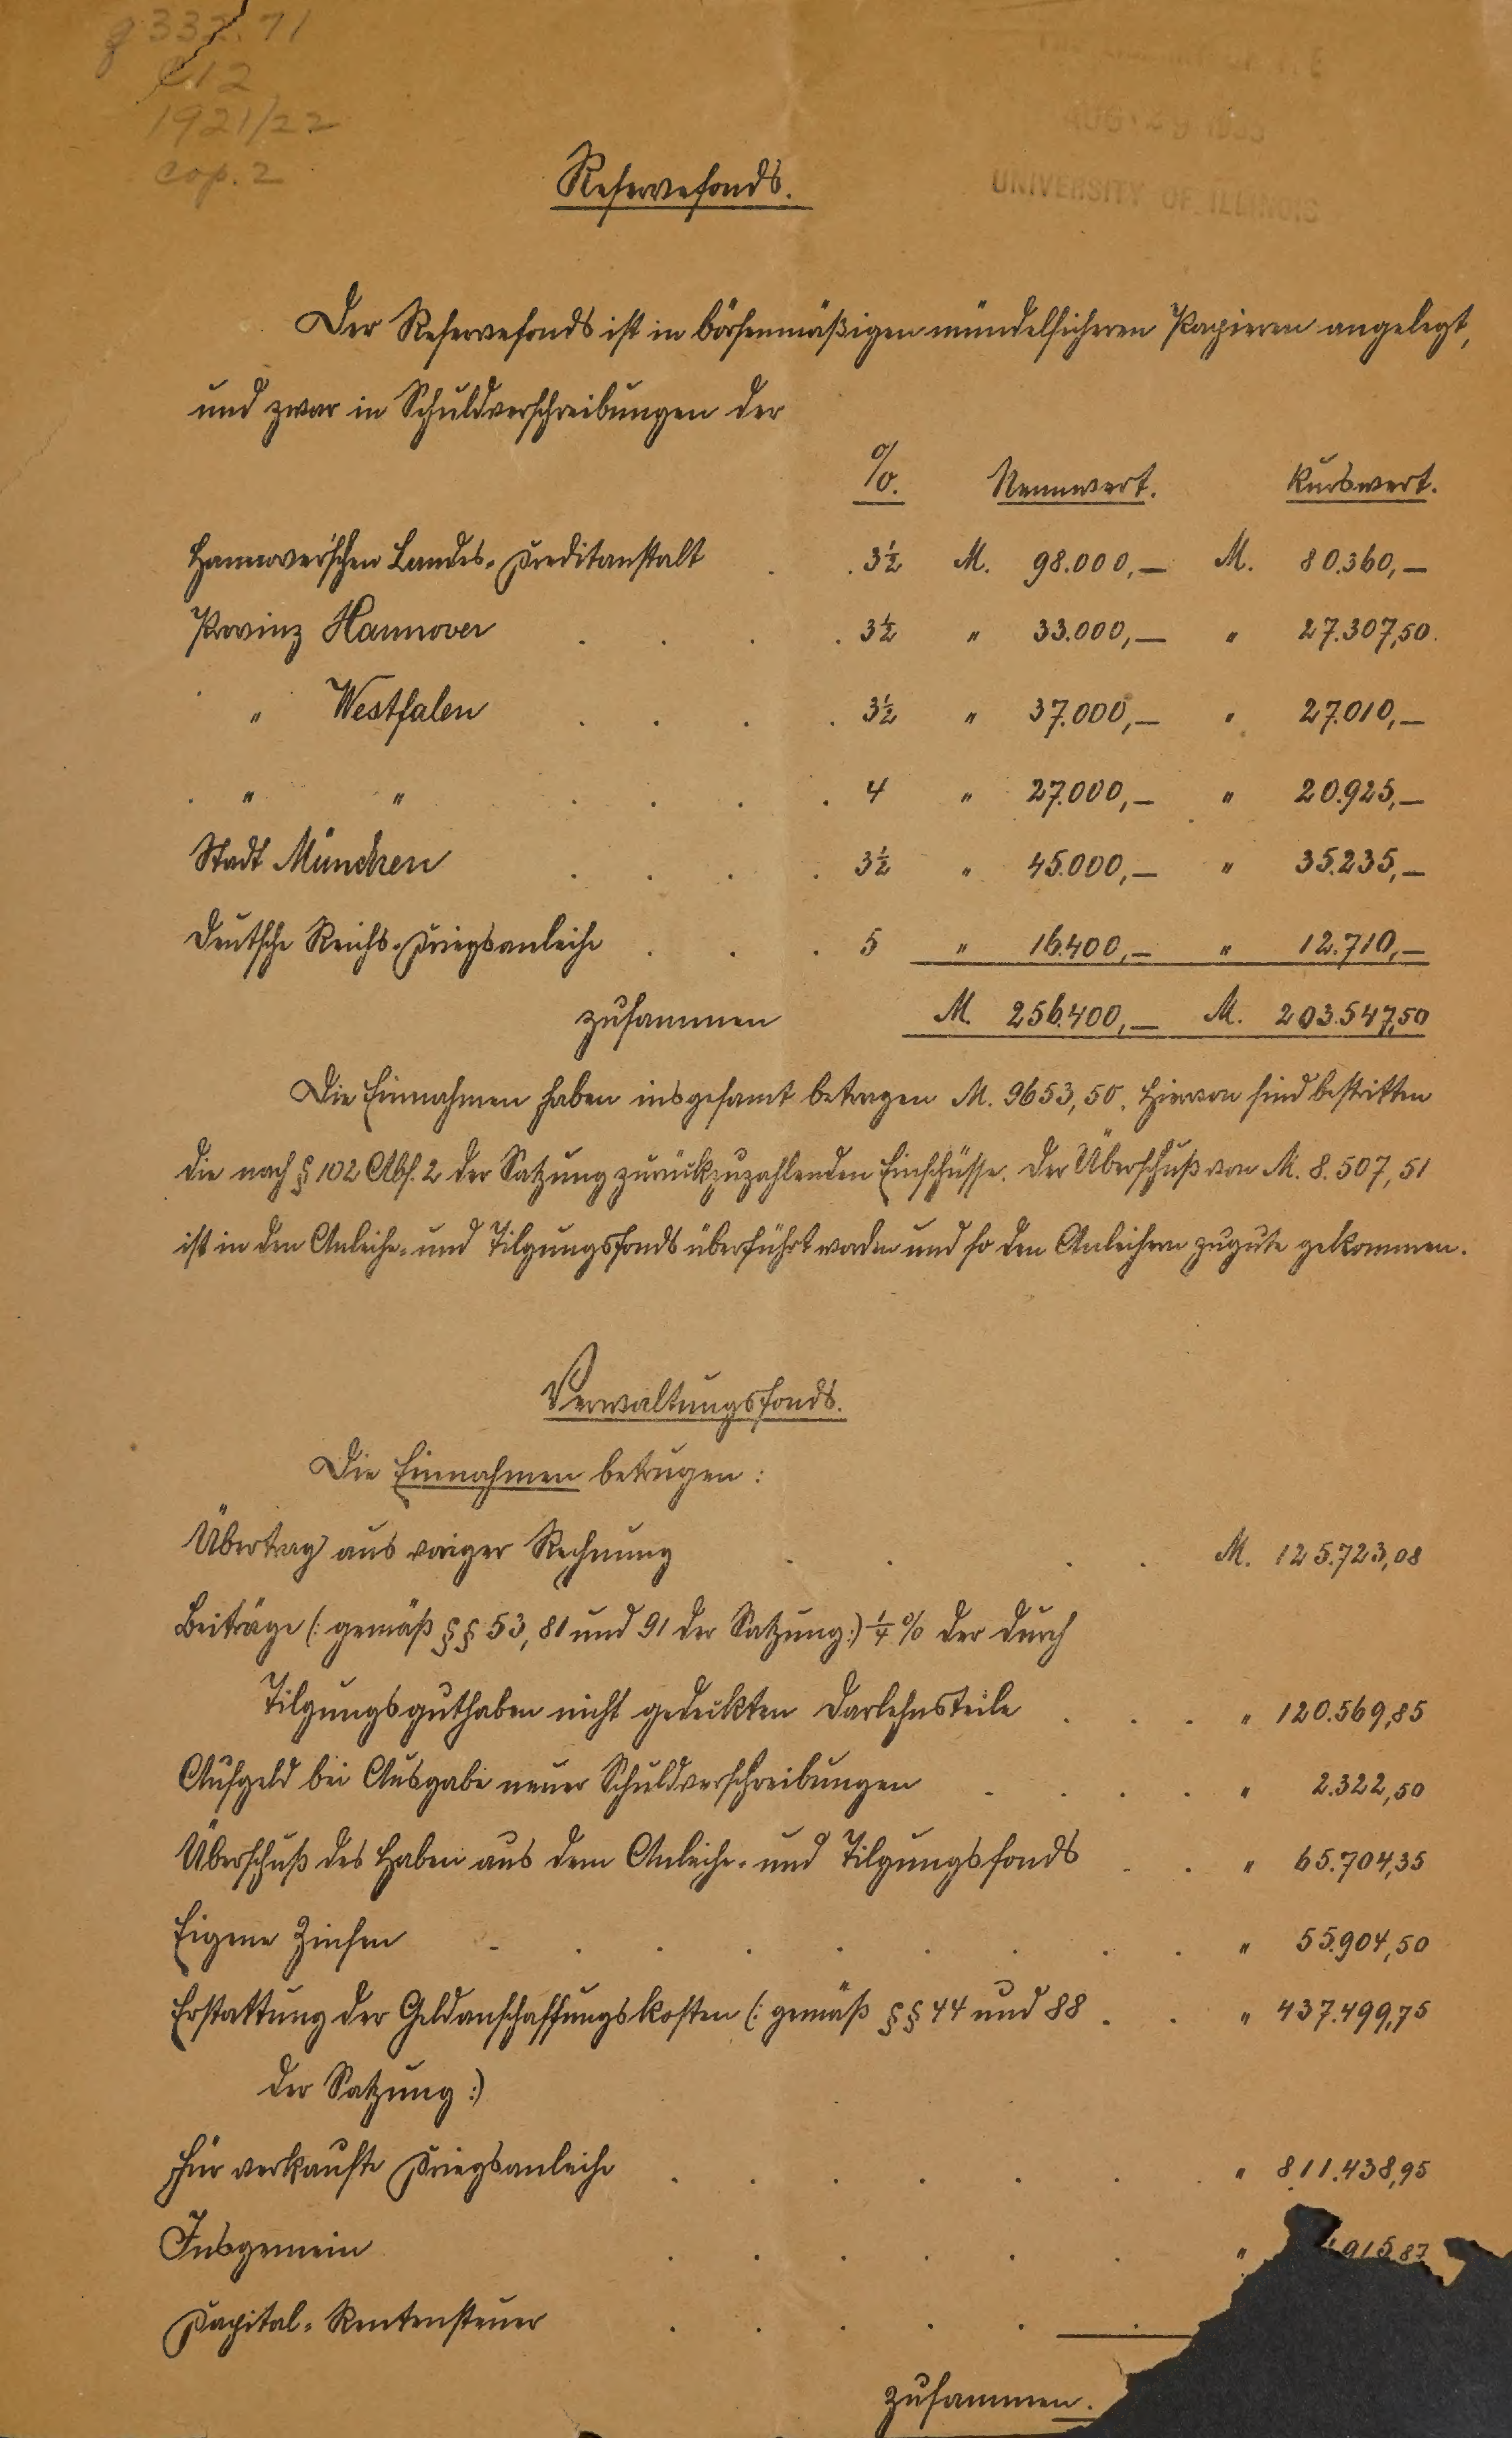 g 332.71
C12
1921/22
cop. 2
AUG 29 1935
UNIVERSITY OF ILLINOIS
Reservefonds.
Der Reservefonds ist in börsenmäßigen mündelsicheren Papieren angelegt,
und zwar in Schuldverschreibungen der
%. Nennwert. Kurswert.
Hannoverschen Landes-Kreditanstalt . . 3½ M. 98.000,— M. 80.360,—
Provinz Hannover . . . . 3½ " 33.000,— " 27.307,50.
" Westfalen . . . . 3½ " 37.000,— " 27.010,—
" " . . . . 4 " 27.000,— " 20.925,—
Stadt München . . . . 3½ " 45.000,— " 35.235,—
Deutsche Reichs-Kriegsanleihe . . . 5 " 16.400,— " 12.710,—
zusammen M. 256.400,— M. 203.547,50
Die Einnahmen haben insgesamt betragen M. 9653,50. Hiervon sind bestritten
die nach § 102 Abs. 2 der Satzung zurückzuzahlenden Einschüsse. Der Überschuß von M. 8.507,51
ist in den Anleihe- und Tilgungsfonds überführt worden und so den Anleihern zugute gekommen.
Verwaltungsfonds.
Die Einnahmen betrugen:
Übertrag aus voriger Rechnung . . . . M. 125.723,08
Beiträge (: gemäß §§ 53, 81 und 91 der Satzung:) ¼ % der durch
Tilgungsguthaben nicht gedeckten Darlehnsteile . . . " 120.569,85
Aufgeld bei Ausgabe neuer Schuldverschreibungen . . . . " 2.322,50
Überschuß des Haben aus dem Anleihe- und Tilgungsfonds . . " 65.704,35
Eigene Zinsen . . . . . . . . . " 55.904,50
Erstattung der Geldanschaffungskosten (: gemäß §§ 44 und 88 . . " 437.499,75
der Satzung:)
Für verkaufte Kriegsanleihe . . . . . . . " 811.438,95
Insgemein . . . . . . " 915,87
Kapital-Rentensteuer . . . . . .
zusammen.